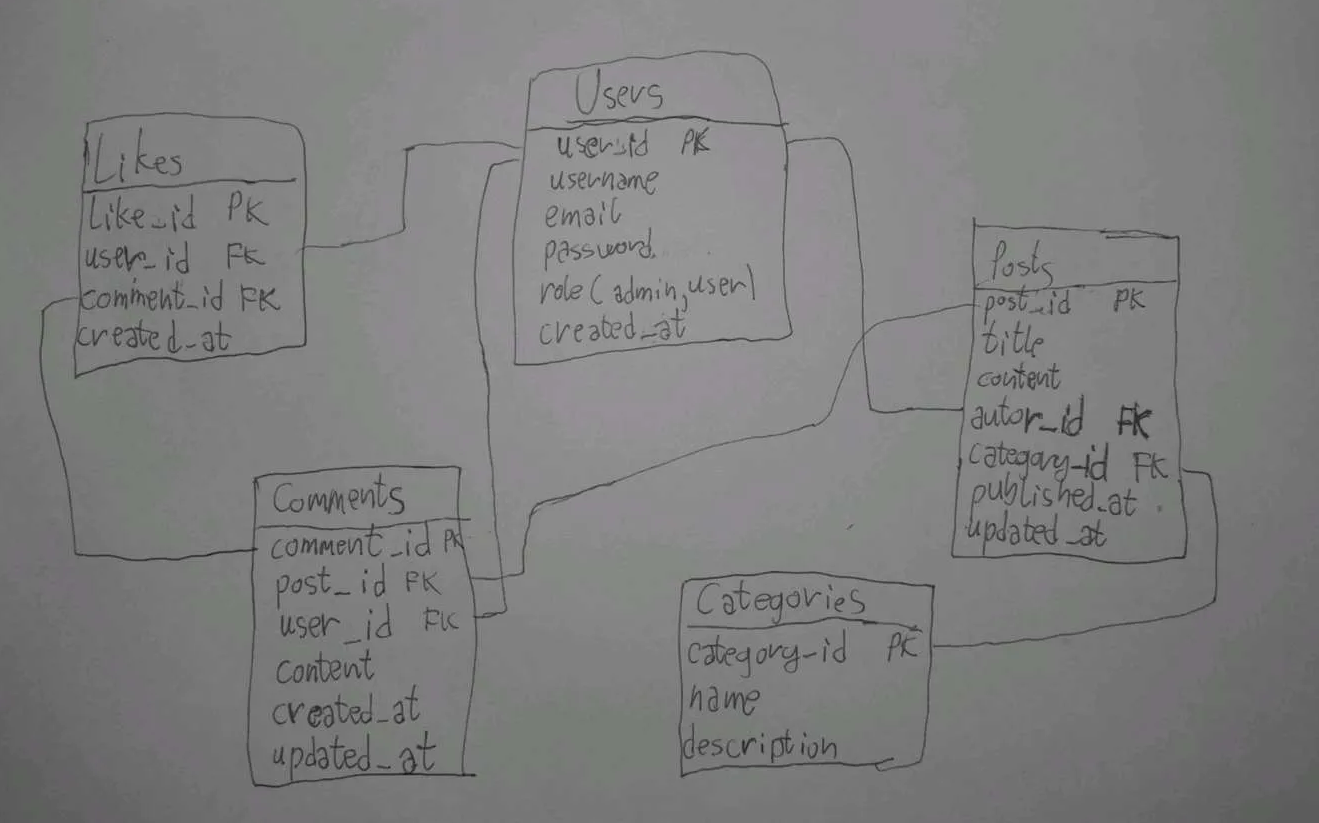 Likes
Like_id PK
user_id FK
comment_id FK
created_at
Users
user_id PK
username
email
password
role (admin,user)
created_at
Posts
post_id PK
title
content
autor_id FK
category_id FK
published_at
updated_at
Comments
comment_id PK
post_id FK
user_id FK
content
created_at
updated_at
Categories
category_id PK
name
description